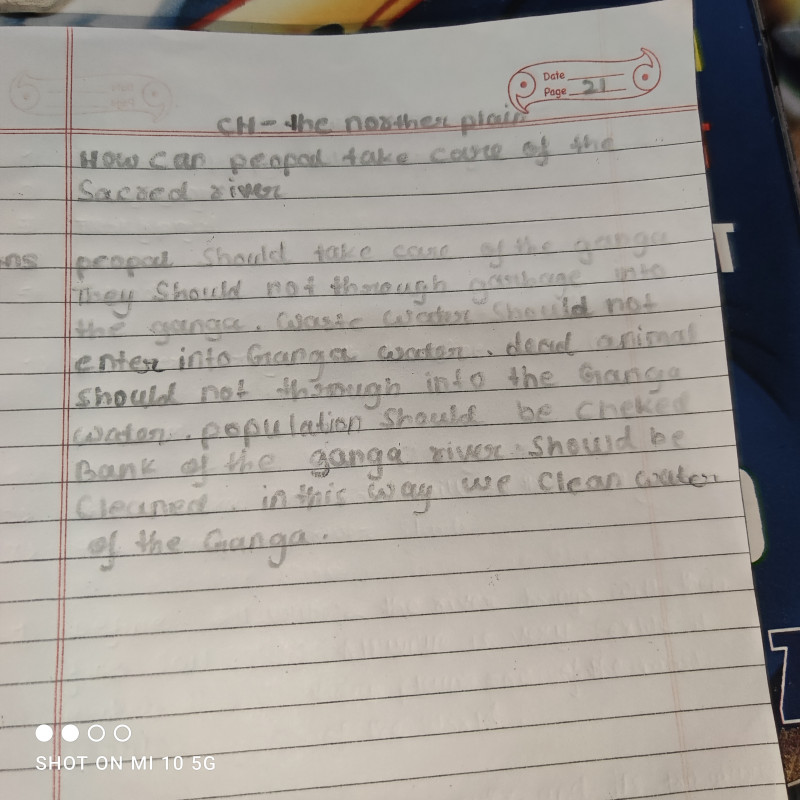 Date
Page 21
CH - the northen plain
How can peopal take care of the
Sacred river
ns peopal should take care of the ganga
They Should not through garbage into
the ganga. Waste water should not
enter into Ganga water. dead animal
should not through into the Ganga
water. population should be cheked
Bank of the ganga river should be
Cleaned. in this way we clean water
of the Ganga.
SHOT ON MI 10 5G